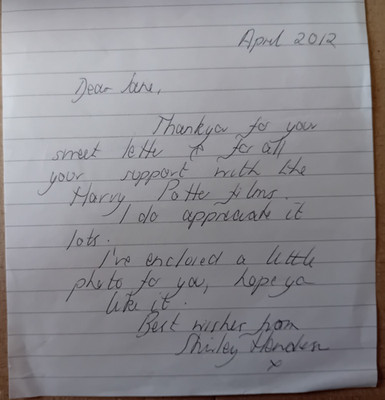 April 2012
Dear Jane,
Thankyou for your
sweet letter & for all
your support with the
Harry Potter films.
I do appreciate it
lots.
I've enclosed a little
photo for you, hope you
like it.
Best wishes from
Shirley Henderson
x